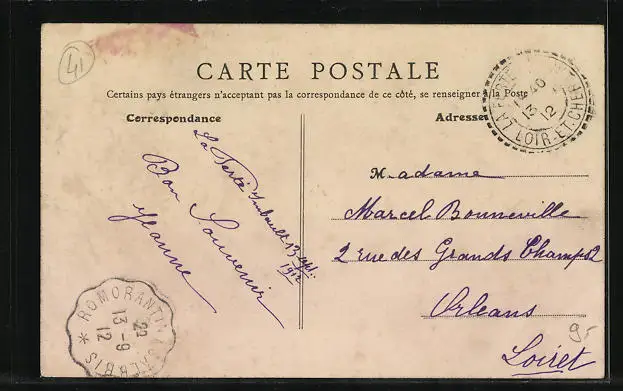 41
CARTE POSTALE
Certains pays étrangers n'acceptant pas la correspondance de ce côté, se renseigner à la Poste
Correspondance
Adresse
La Ferté Imbault 13 sept.
1912
Bon Souvenir
Jeanne
Madame
Marcel Bonneville
2 rue des Grands Champs 2
Orleans
Loiret
95
LA FERTE
40
13
12
LOIR-ET-CHER
ROMORANTIN
22
13-9
12